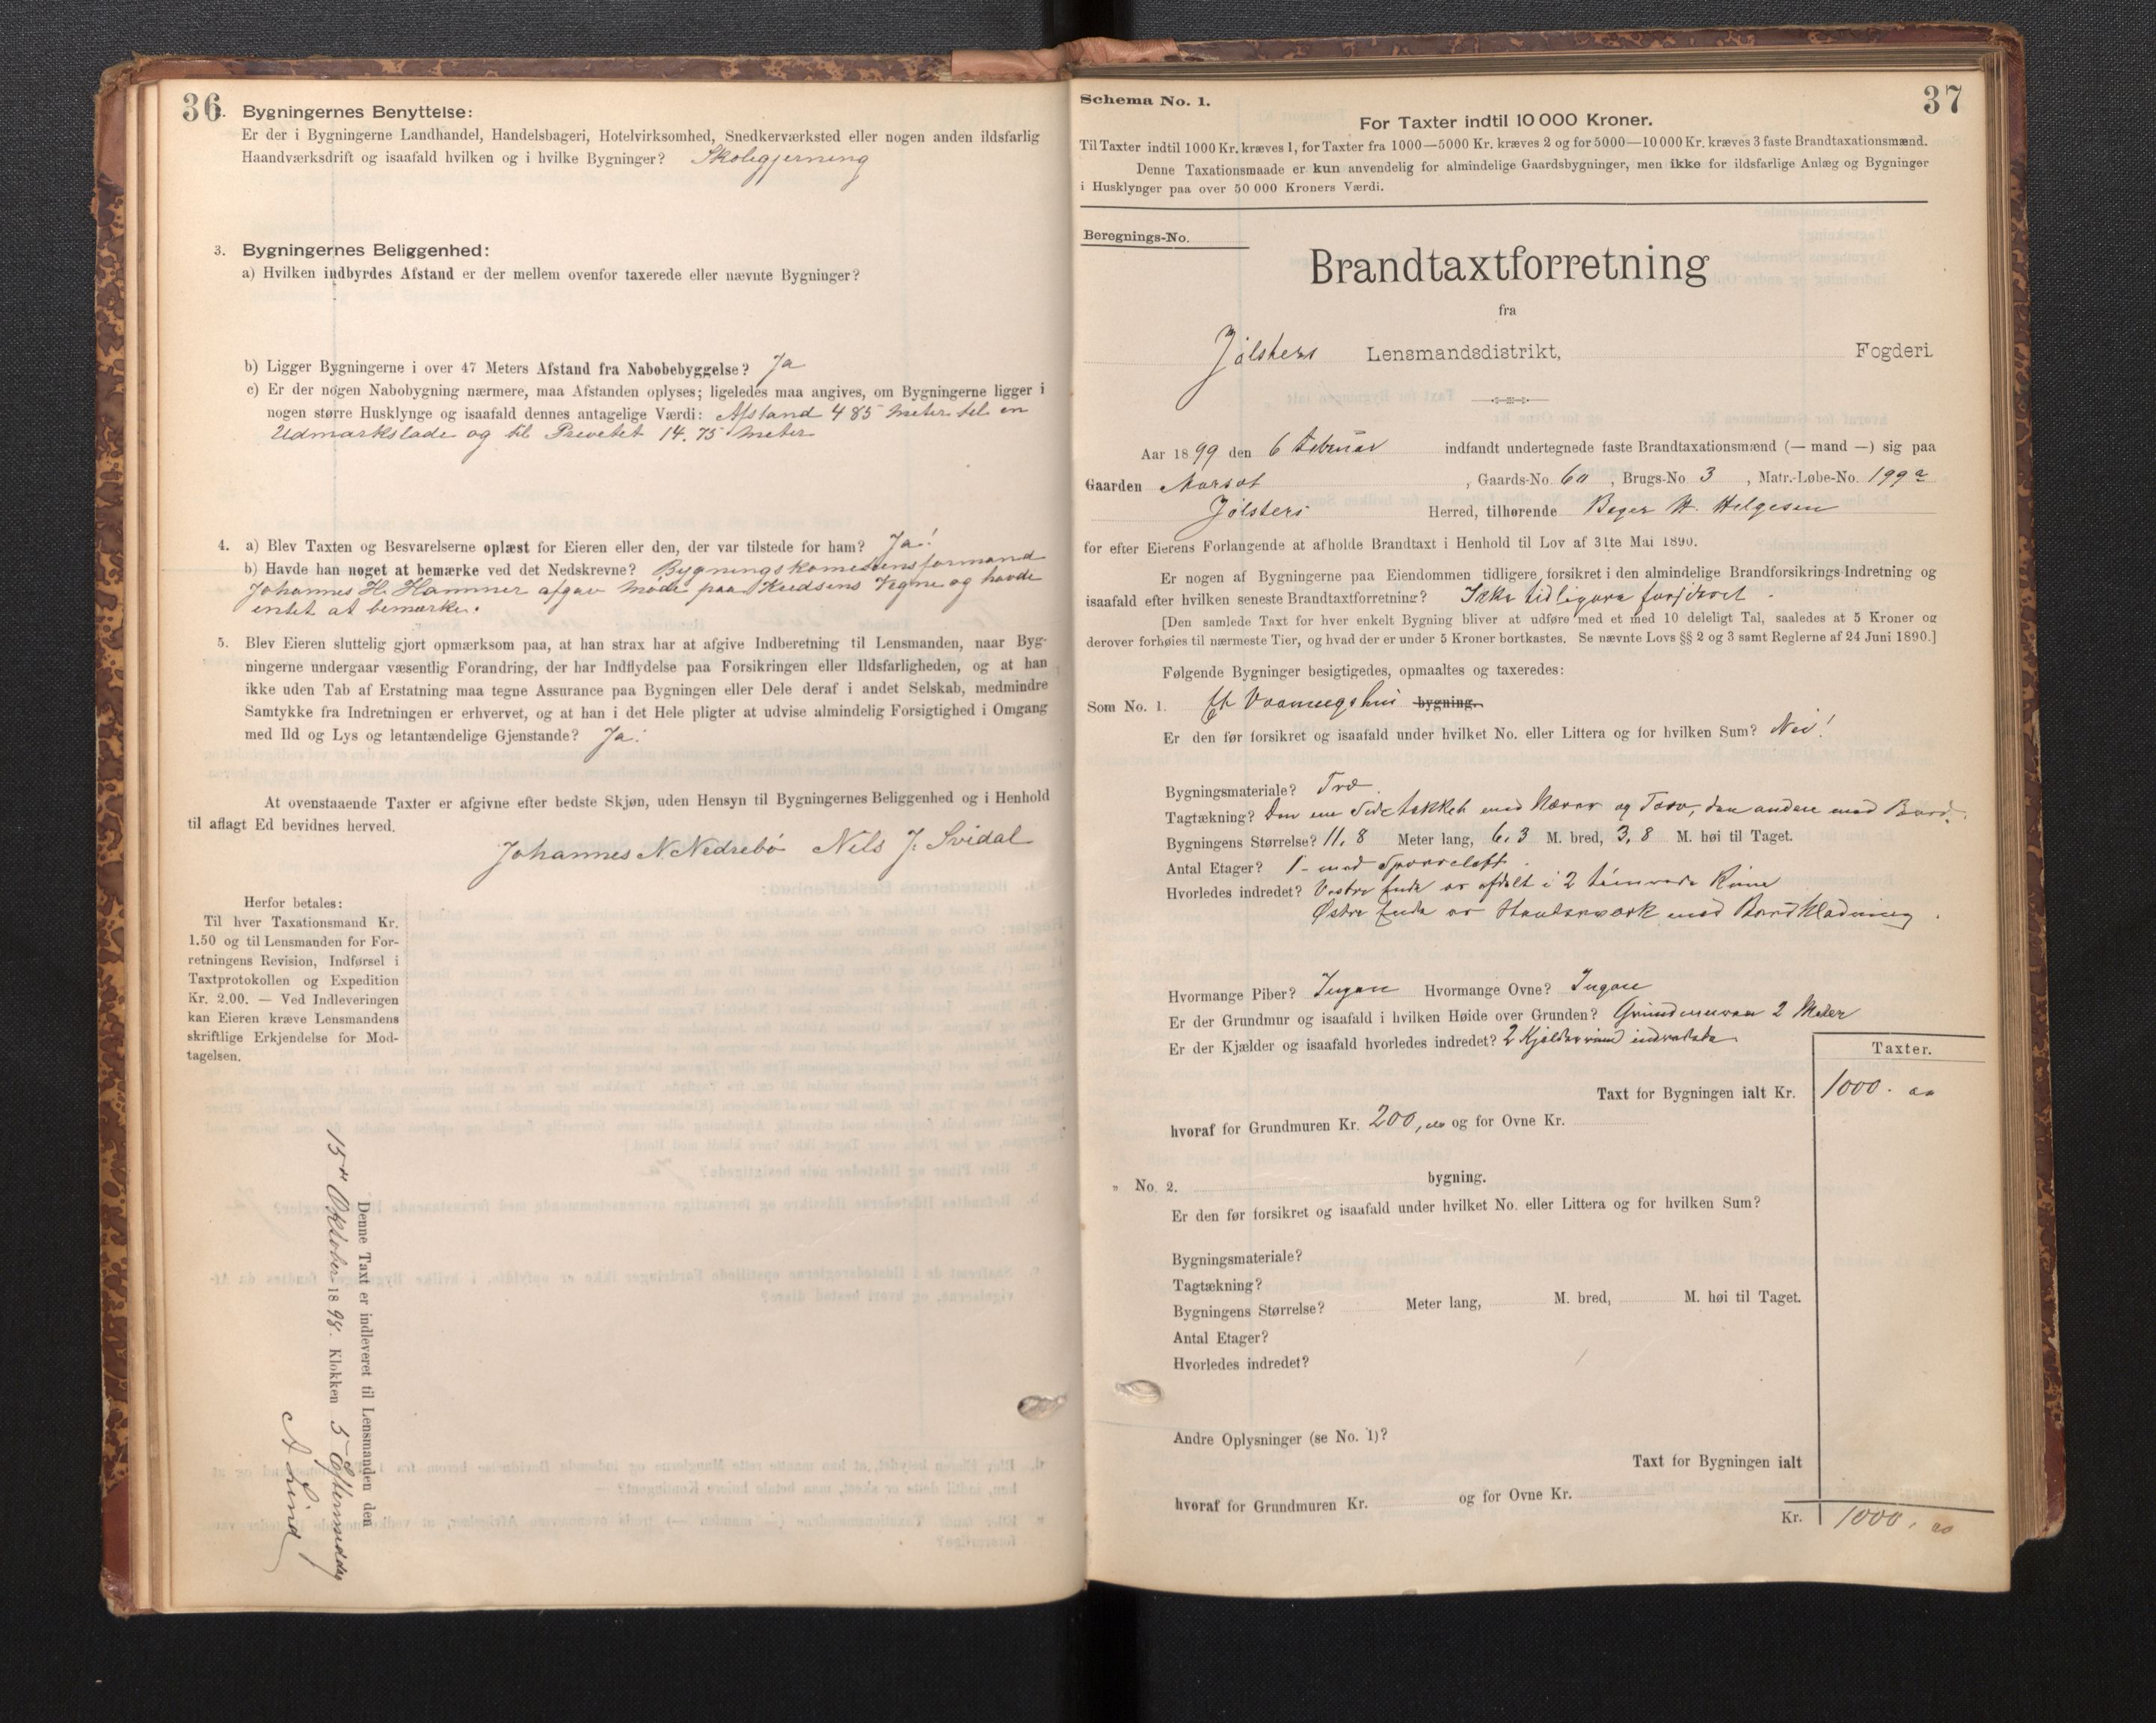 36.
Bygningernes Benyttelse:
Er der i Bygningerne Landhandel, Handelsbageri, Hotelvirksomhed, Snedkerværksted eller nogen anden ildsfarlig
Haandværksdrift og isaafald hvilken og i hvilke Bygninger? Skolegjerning
3. Bygningernes Beliggenhed:
a) Hvilken indbyrdes Afstand er der mellem ovenfor taxerede eller nævnte Bygninger?
b) Ligger Bygningerne i over 47 Meters Afstand fra Nabobebyggelse? Ja
c) Er der nogen Nabobygning nærmere, maa Afstanden oplyses; ligeledes maa angives, om Bygningerne ligger i
nogen større Husklynge og isaafald dennes antagelige Værdi: Afstand 485 meter til en
Udmarkslade og til Prevetet 14.75 meter
4. a) Blev Taxten og Besvarelserne oplæst for Eieren eller den, der var tilstede for ham? Ja!
b) Havde han noget at bemærke ved det Nedskrevne? Bygningskomesionsformand
Johannes H. Hammer afgav møde paa Vegne og havde
intet at bemærke.
5. Blev Eieren sluttelig gjort opmærksom paa, at han strax har at afgive Indberetning til Lensmanden, naar Byg-
ningerne undergaar væsentlig Forandring, der har Indflydelse paa Forsikringen eller Ildsfarligheden, og at han
ikke uden Tab af Erstatning maa tegne Assurance paa Bygningen eller Dele deraf i andet Selskab, medmindre
Samtykke fra Indretningen er erhvervet, og at han i det Hele pligter at udvise almindelig Forsigtighed i Omgang
med Ild og Lys og letantændelige Gjenstande? Ja!
At ovenstaaende Taxter er afgivne efter bedste Skjøn, uden Hensyn til Bygningernes Beliggenhed og i Henhold
til aflagt Ed bevidnes herved.
Johannes N. Nedrebø Nils J. Svidal
Herfor betales:
Til hver Taxationsmand Kr.
1.50 og til Lensmanden for For-
retningens Revision, Indførsel i
Taxtprotokollen og Expedition
Kr. 2.00. — Ved Indleveringen
kan Eieren kræve Lensmandens
skriftlige Erkjendelse for Mod-
tagelsen.
Denne Taxt er indleveret til Lensmanden den
15de Oktober 1898. Klokken 5 Eftermiddag
A Lind
37
Schema No. 1.
For Taxter indtil 10 000 Kroner.
Til Taxter indtil 1000 Kr. kræves 1, for Taxter fra 1000—5000 Kr. kræves 2 og for 5000—10 000 Kr. kræves 3 faste Brandtaxationsmænd.
Denne Taxationsmaade er kun anvendelig for almindelige Gaardsbygninger, men ikke for ildsfarlige Anlæg og Bygninger
i Husklynger paa over 50 000 Kroners Værdi.
Beregnings-No.
Brandtaxtforretning
fra
Jølsters Lensmandsdistrikt, Fogderi.
Aar 1899 den 6 Februar indfandt undertegnede faste Brandtaxationsmænd (— mand —) sig paa
Gaarden , Gaards-No. , Brugs-No. 3, Matr.-Løbe-No. 199a
Jølsters Herred, tilhørende H. Helgesen
for efter Eierens Forlangende at afholde Brandtaxt i Henhold til Lov af 31te Mai 1890.
Er nogen af Bygningerne paa Eiendommen tidligere forsikret i den almindelige Brandforsikrings-Indretning og
isaafald efter hvilken seneste Brandtaxtforretning? Ikke tidligere forsikret.
[Den samlede Taxt for hver enkelt Bygning bliver at udføre med et med 10 deleligt Tal, saaledes at 5 Kroner og
derover forhøies til nærmeste Tier, og hvad der er under 5 Kroner bortkastes. Se nævnte Lovs §§ 2 og 3 samt Reglerne af 24 Juni 1890.]
Følgende Bygninger besigtigedes, opmaaltes og taxeredes:
Som No. 1. Et Vaaningshus bygning.
Er den før forsikret og isaafald under hvilket No. eller Littera og for hvilken Sum? Nei!
Bygningsmateriale? Træ.
Tagtækning? Den ene Side tækket med Næver og Torv, den anden med Bord.
Bygningens Størrelse? 11,8 Meter lang, 6,3 M. bred, 3,8 M. høi til Taget.
Antal Etager? 1 – med Sparreloft.
Hvorledes indredet? Vestre Ende er afdelt i 2 tømrede Rum
Østre Ende er Stavværk med Bordklædning.
Hvormange Piber? Ingen Hvormange Ovne? Ingen
Er der Grundmur og isaafald i hvilken Høide over Grunden? Grundmuren 2 Meter
Er der Kjælder og isaafald hvorledes indredet? 2 Kjelderrum indredede
Taxter.
Taxt for Bygningen ialt Kr. 1000. 00
hvoraf for Grundmuren Kr. 200,00 og for Ovne Kr.
" No. 2. bygning.
Er den før forsikret og isaafald under hvilket No. eller Littera og for hvilken Sum?
Bygningsmateriale?
Tagtækning?
Bygningens Størrelse? Meter lang, M. bred, M. høi til Taget.
Antal Etager?
Hvorledes indredet?
Andre Oplysninger (se No. 1)?
Taxt for Bygningen ialt
hvoraf for Grundmuren Kr. og for Ovne Kr.
Kr. 1000, 00